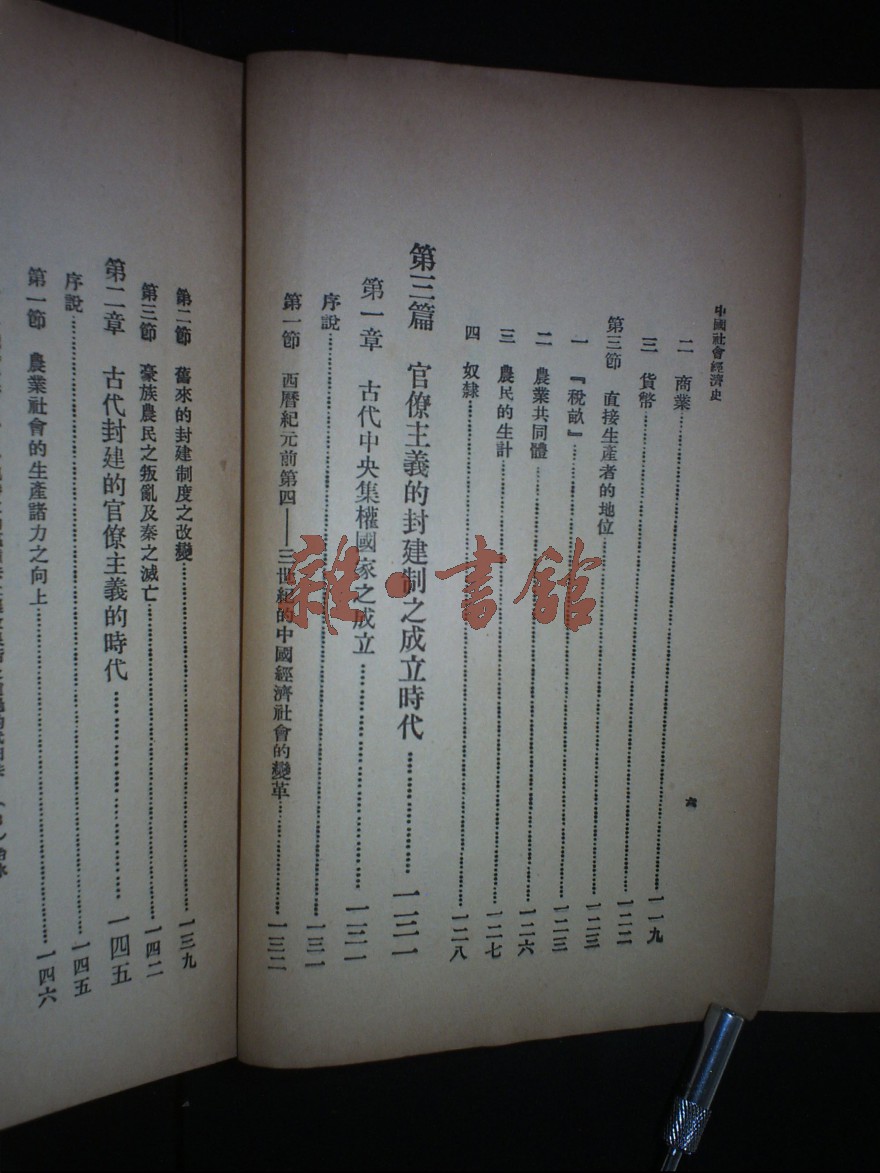 中國社會經濟史
六
二 商業……一一九
三 貨幣……一二二
第三節 直接生產者的地位……一二三
一 『稅畝』……一二三
二 農業共同體……一二六
三 農民的生計……一二七
四 奴隸……一二八
第三篇 官僚主義的封建制之成立時代……一三一
第一章 古代中央集權國家之成立……一三一
序說……一三一
第一節 西曆紀元前第四——三世紀的中國經濟社會的變革……一三二
第二節 舊來的封建制度之改變……一三九
第三節 豪族農民之叛亂及秦之滅亡……一四二
第二章 古代封建的官僚主義的時代……一四五
序說……一四五
第一節 農業社會的生產諸力之向上……一四六
雜·書館